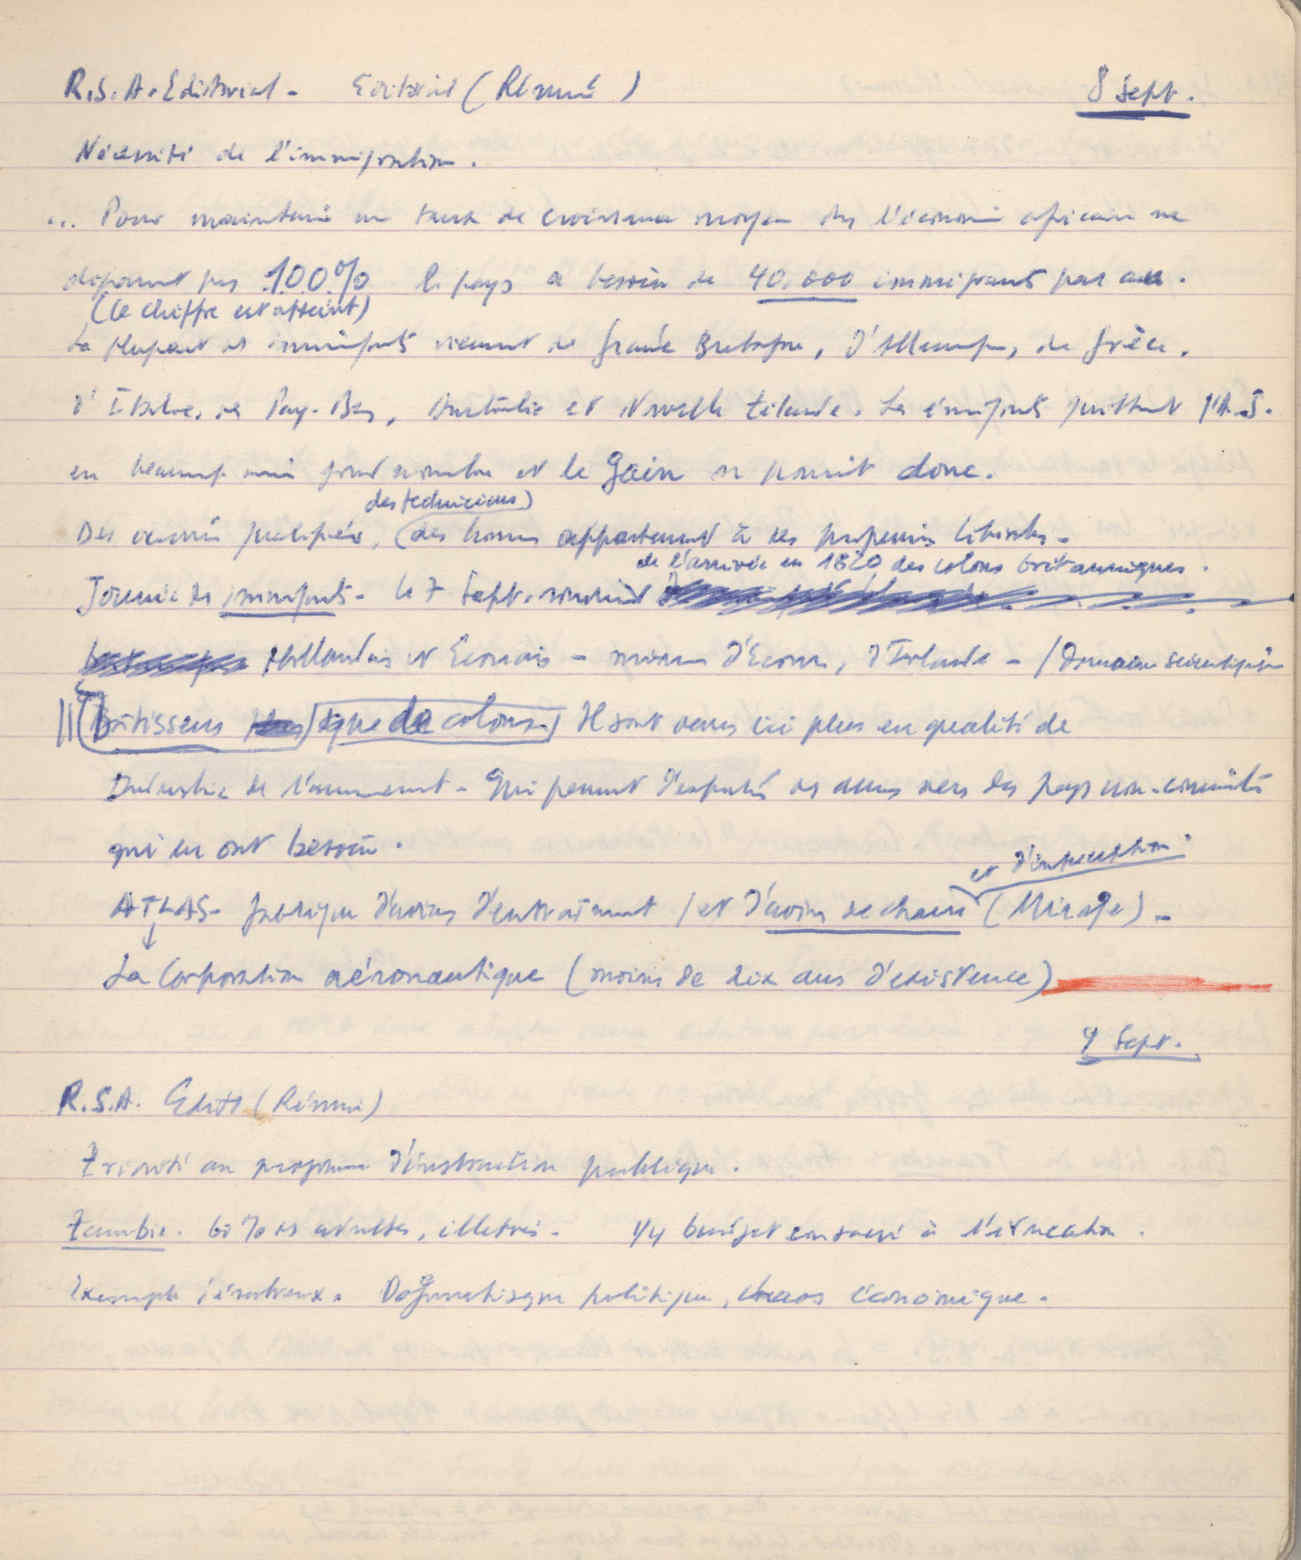 R.S.A. Editorial - Editorial (Résumé) 8 Sept.
Nécessité de l'immigration.
... Pour maintenir un taux de croissance moyen ds l'économie africaine ne
dépassant pas 100% le pays a besoin de 40.000 immigrants par an.
(le chiffre est atteint)
La plupart des immigrants viennent de Grande Bretagne, d'Allemagne, de Grèce,
d'Italie, des Pays-Bas, Australie et Nouvelle Zélande. Les émigrants quittent l'A.S.
en beaucoup moins grand nombre et le gain se poursuit donc.
des techniciens)
Des ouvriers qualifiés, (des hommes appartenant à des professions libérales -
de l'arrivée en 1820 des colons britanniques.
Journée des immigrants - le 7 Sept.
Hollandais et Ecossais - d'Ecosse, d'Irlande - / Domaine scientifique
bâtisseurs que de colons) Il sont venus ici plus en qualité de
Industrie de l'armement - Qui permet d'exporter des armes vers des pays non-communistes
qui en ont besoin.
et d'interception
ATLAS - fabrique d'avions d'entraînement / et d'avions de chasse (Mirage) -
La Corporation aéronautique (moins de dix ans d'existence)
9 Sept.
R.S.A. Edito (Résumé)
Priorité au programme d'instruction publique.
Zambie. 60 % des adultes, illettrés - 1/4 budget consacré à l'éducation.
Exemple désastreux. Dogmatisme politique, chaos économique.